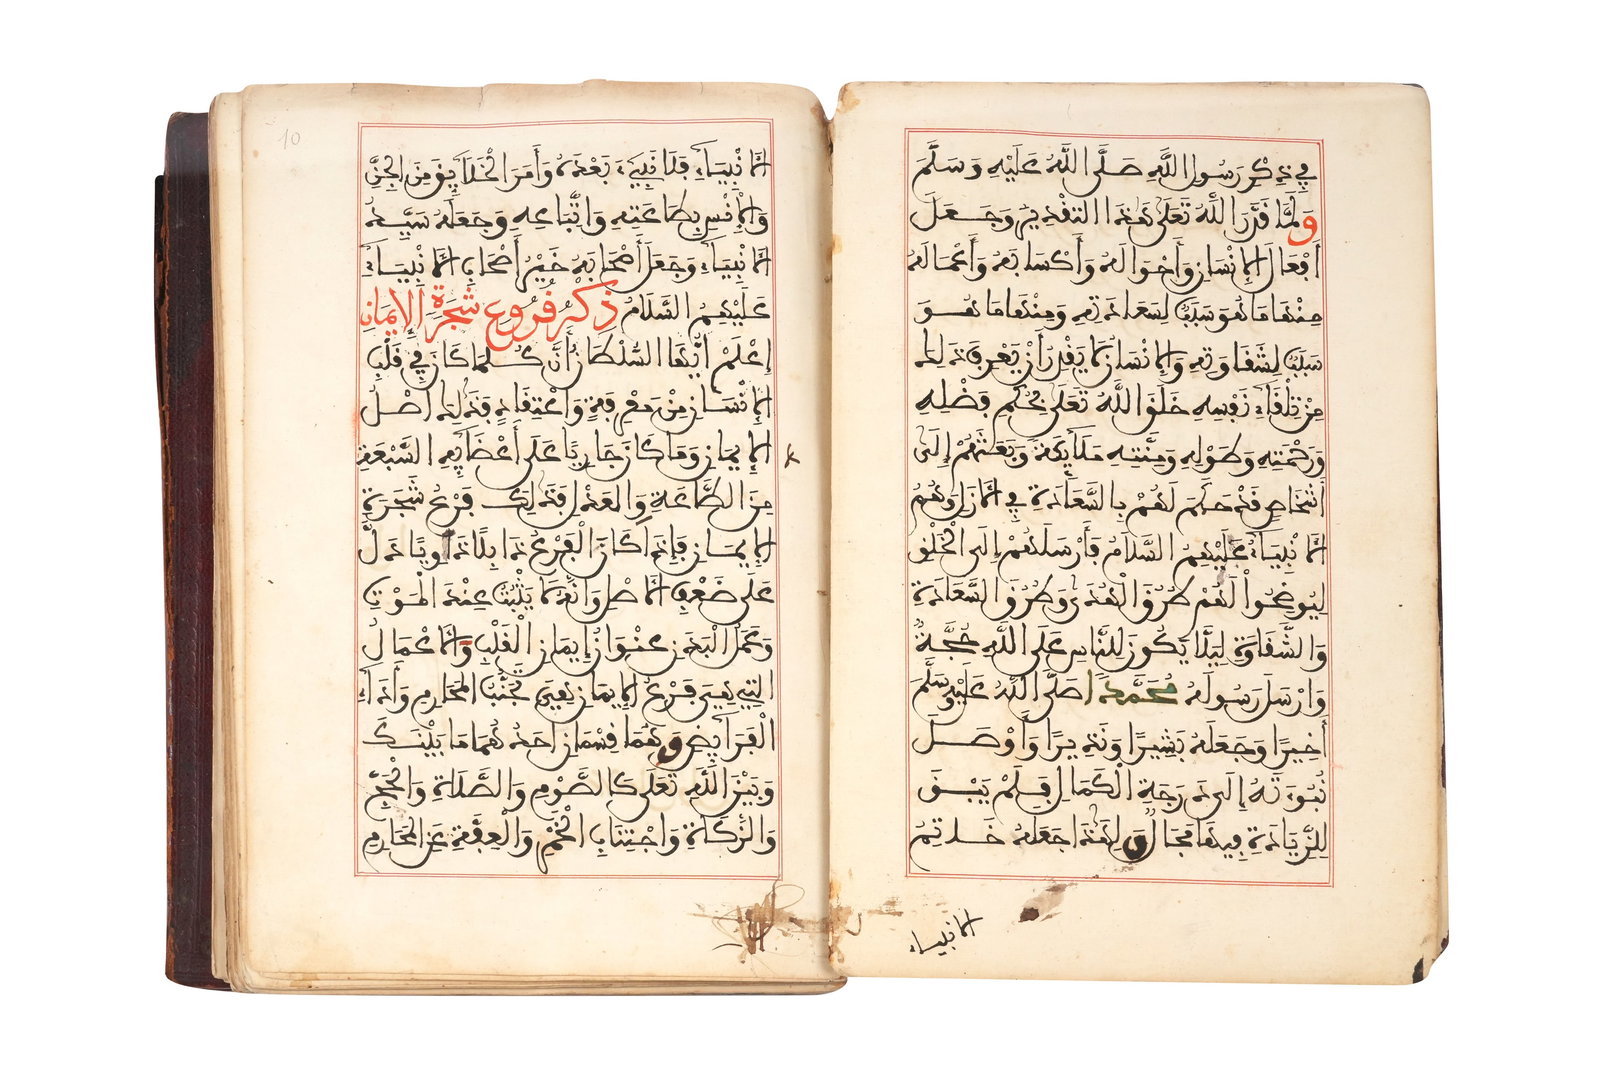 في ذكر رسول الله صلى الله عليه وسلم
ولما قدر الله تعلى هذا التقدير وجعل
أفعال الإنسان وأحواله وأكسابه وأعماله
منها ما هو سببا لسعادته ومنها ما هو
سببا لشقاوته والإنسان لا يقدر أن يعرف ذلك
من تلقاء نفسه خلق الله تعلى بحكم فضله
ورحمته وطوله ومنته ملائكة وبعثهم إلى
اشخاص قد حكم لهم بالسعادة في الازل وهم
الانبياء عليهم السلام فأرسلهم إلى الخلق
ليوضحوا لهم طرق الهدى وطرق السعادة
والشقاوة ليلا يكون للناس على الله حجة
وارسل رسوله محمدا صلى الله عليه وسلم
أخيرا وجعله بشيرا ونذيرا وأوصل
نبوءته إلى درجة الكمال فلم يبق
للزيادة فيها مجال ولهذا جعله خاتم
الانبياء
10
الأنبياء فلا نبيء بعده وأمر الخلائق من الجن
والإنس بطاعته واتباعه وجعله سيد
الأنبياء وجعل أصحابه خير أصحاب الأنبياء
عليهم السلام ذكر فروع شجرة الإيمان
إعلم أيها السلطان أن كلما كان في قلب
الإنسان من معرفة واعتقاد فذلك اصل
الإيمان وما كان جاريا على أعضائه السبعة
من الطاعة والعدل فذلك فرع شجرة
الإيمان فإذا كان الفرع ذابلا ذاويا دل
على ضعف الأصل وانه لا يثبت عند الموت
وعمل البدن عنوان إيمان القلب والأعمال
التي هي فرع الإيمان هي تجنب المحارم وأداء
الفرائض وهما قسمان احدهما ما بينك
وبين الله تعلى كالصوم والصلاة والحج
والزكاة واجتناب الخمر والعفة عن المحارم